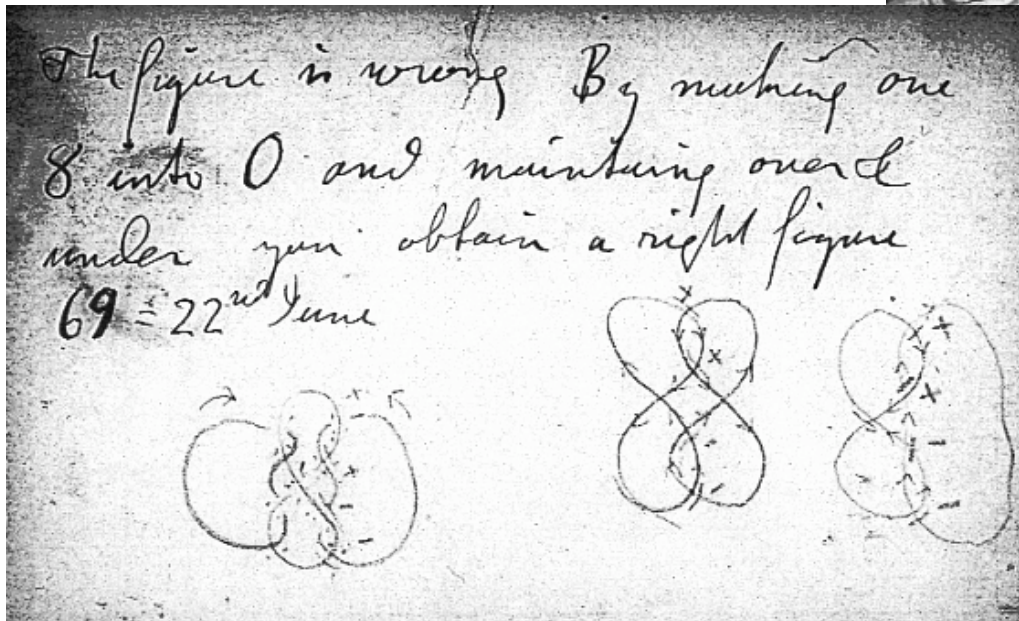 The figure is wrong By making one
8 into 0 and maintaining over &
under you obtain a right figure
69 = 22nd June